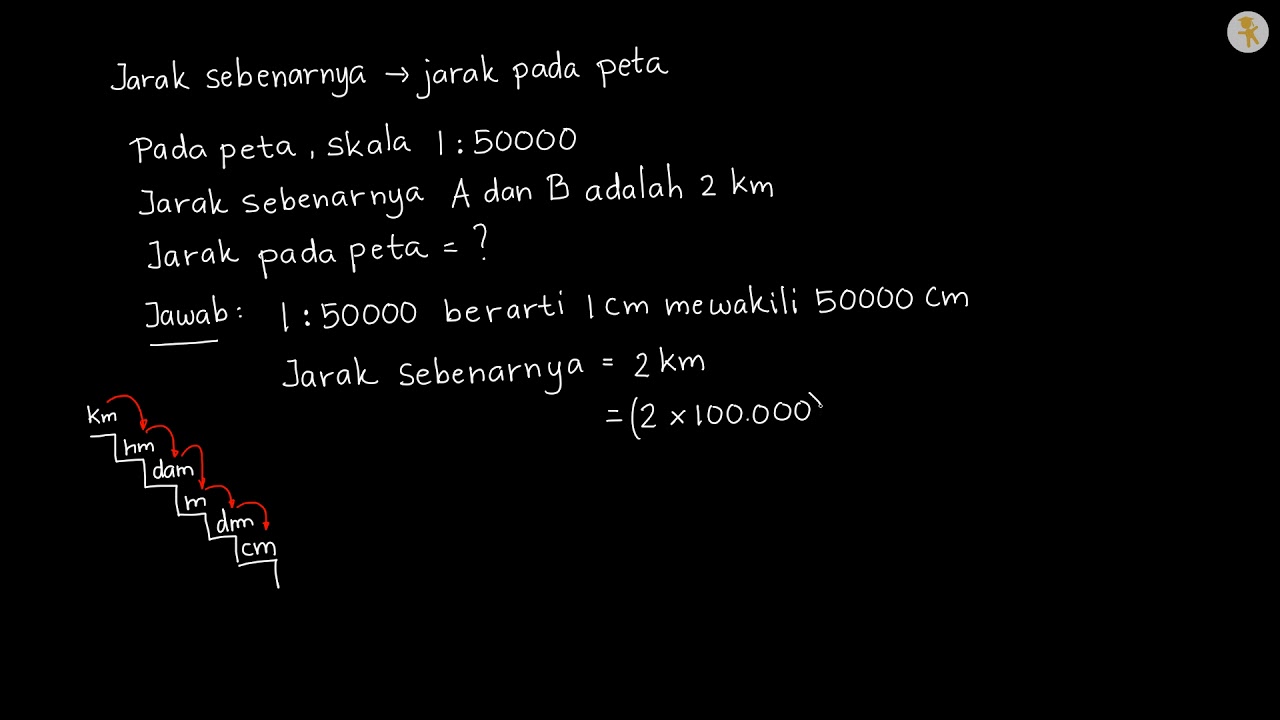 Jarak sebenarnya → jarak pada peta
Pada peta, skala 1 : 50000
Jarak sebenarnya A dan B adalah 2 km
Jarak pada peta = ?
Jawab: 1 : 50000 berarti 1 cm mewakili 50000 cm
Jarak sebenarnya = 2 km
= (2 × 100.000)
km
hm
dam
m
dm
cm